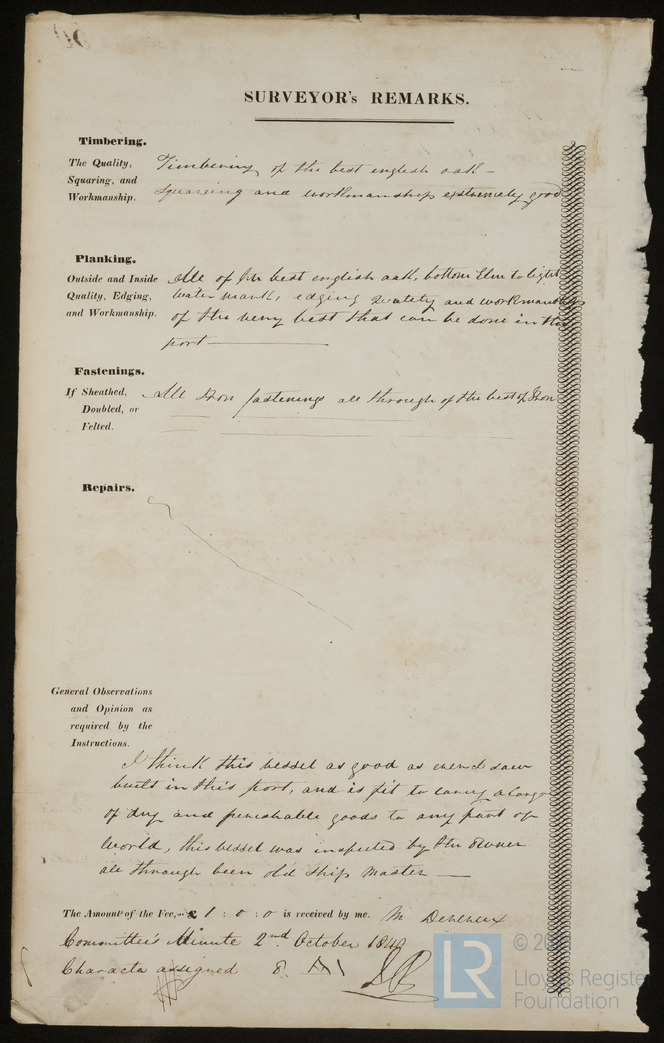 SURVEYOR's REMARKS.
Timbering.
The Quality, Squaring, and Workmanship.
Timbering of the best english oak -
Squareing and workmanship extremely good
Planking.
Outside and Inside Quality, Edging, and Workmanship.
All of the best english oak, bottom Elm to light
water mark, edging quality and workmanship
of the very best that can be done in this
port
Fastenings.
If Sheathed, Doubled, or Felted.
All Iron fastenings all through of the best of Iron
Repairs.
General Observations and Opinion as required by the Instructions.
I think this vessel as good as ever I saw
built in this port, and is fit to carry a Cargo
of dry and pereshable goods to any part of
world, this vessel was inspected by the owner
all through been old ship master
The Amount of the Fee, £ 1 : 0 : 0 is received by me. M
Committee's Minute 2nd October 1840
Character assigned 8 A 1
LR
© 20
Lloyd's Register
Foundation